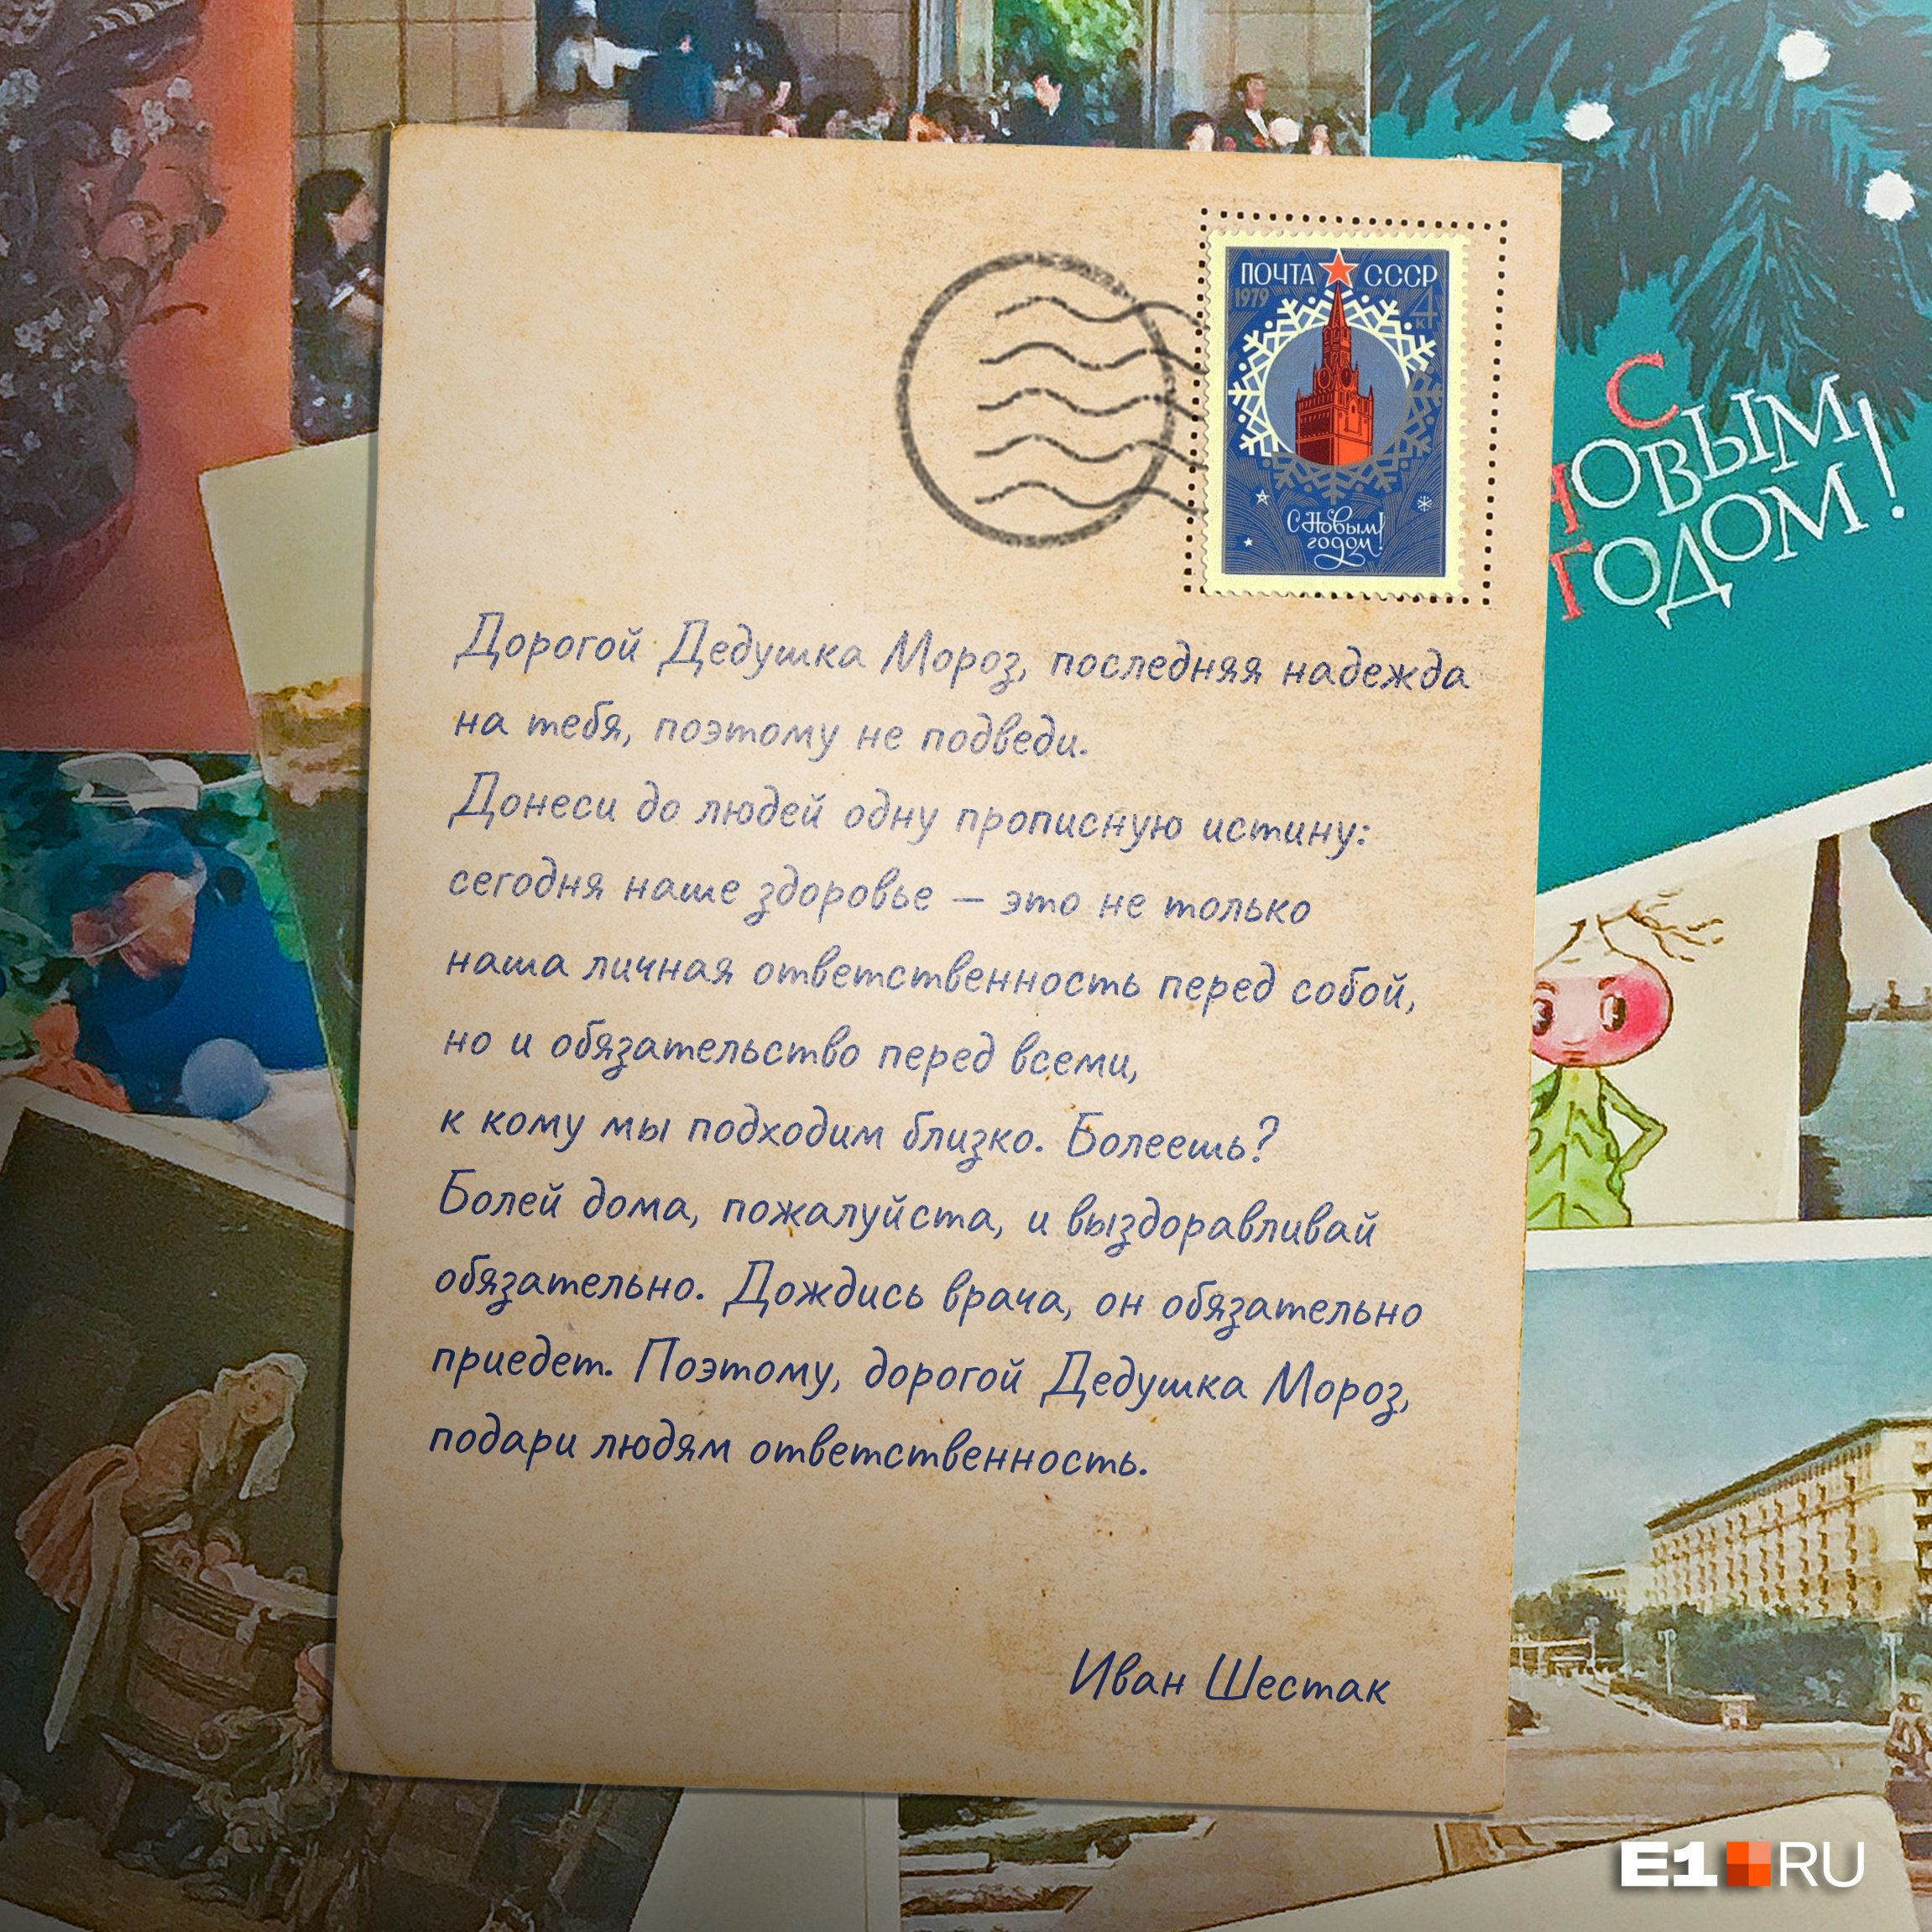 ПОЧТА СССР
1979 4
к
С Новым
годом!
С
НОВЫМ
ГОДОМ!
Дорогой Дедушка Мороз, последняя надежда
на тебя, поэтому не подведи.
Донеси до людей одну прописную истину:
сегодня наше здоровье — это не только
наша личная ответственность перед собой,
но и обязательство перед всеми,
к кому мы подходим близко. Болеешь?
Болей дома, пожалуйста, и выздоравливай
обязательно. Дождись врача, он обязательно
приедет. Поэтому, дорогой Дедушка Мороз,
подари людям ответственность.
Иван Шестак
E1 RU